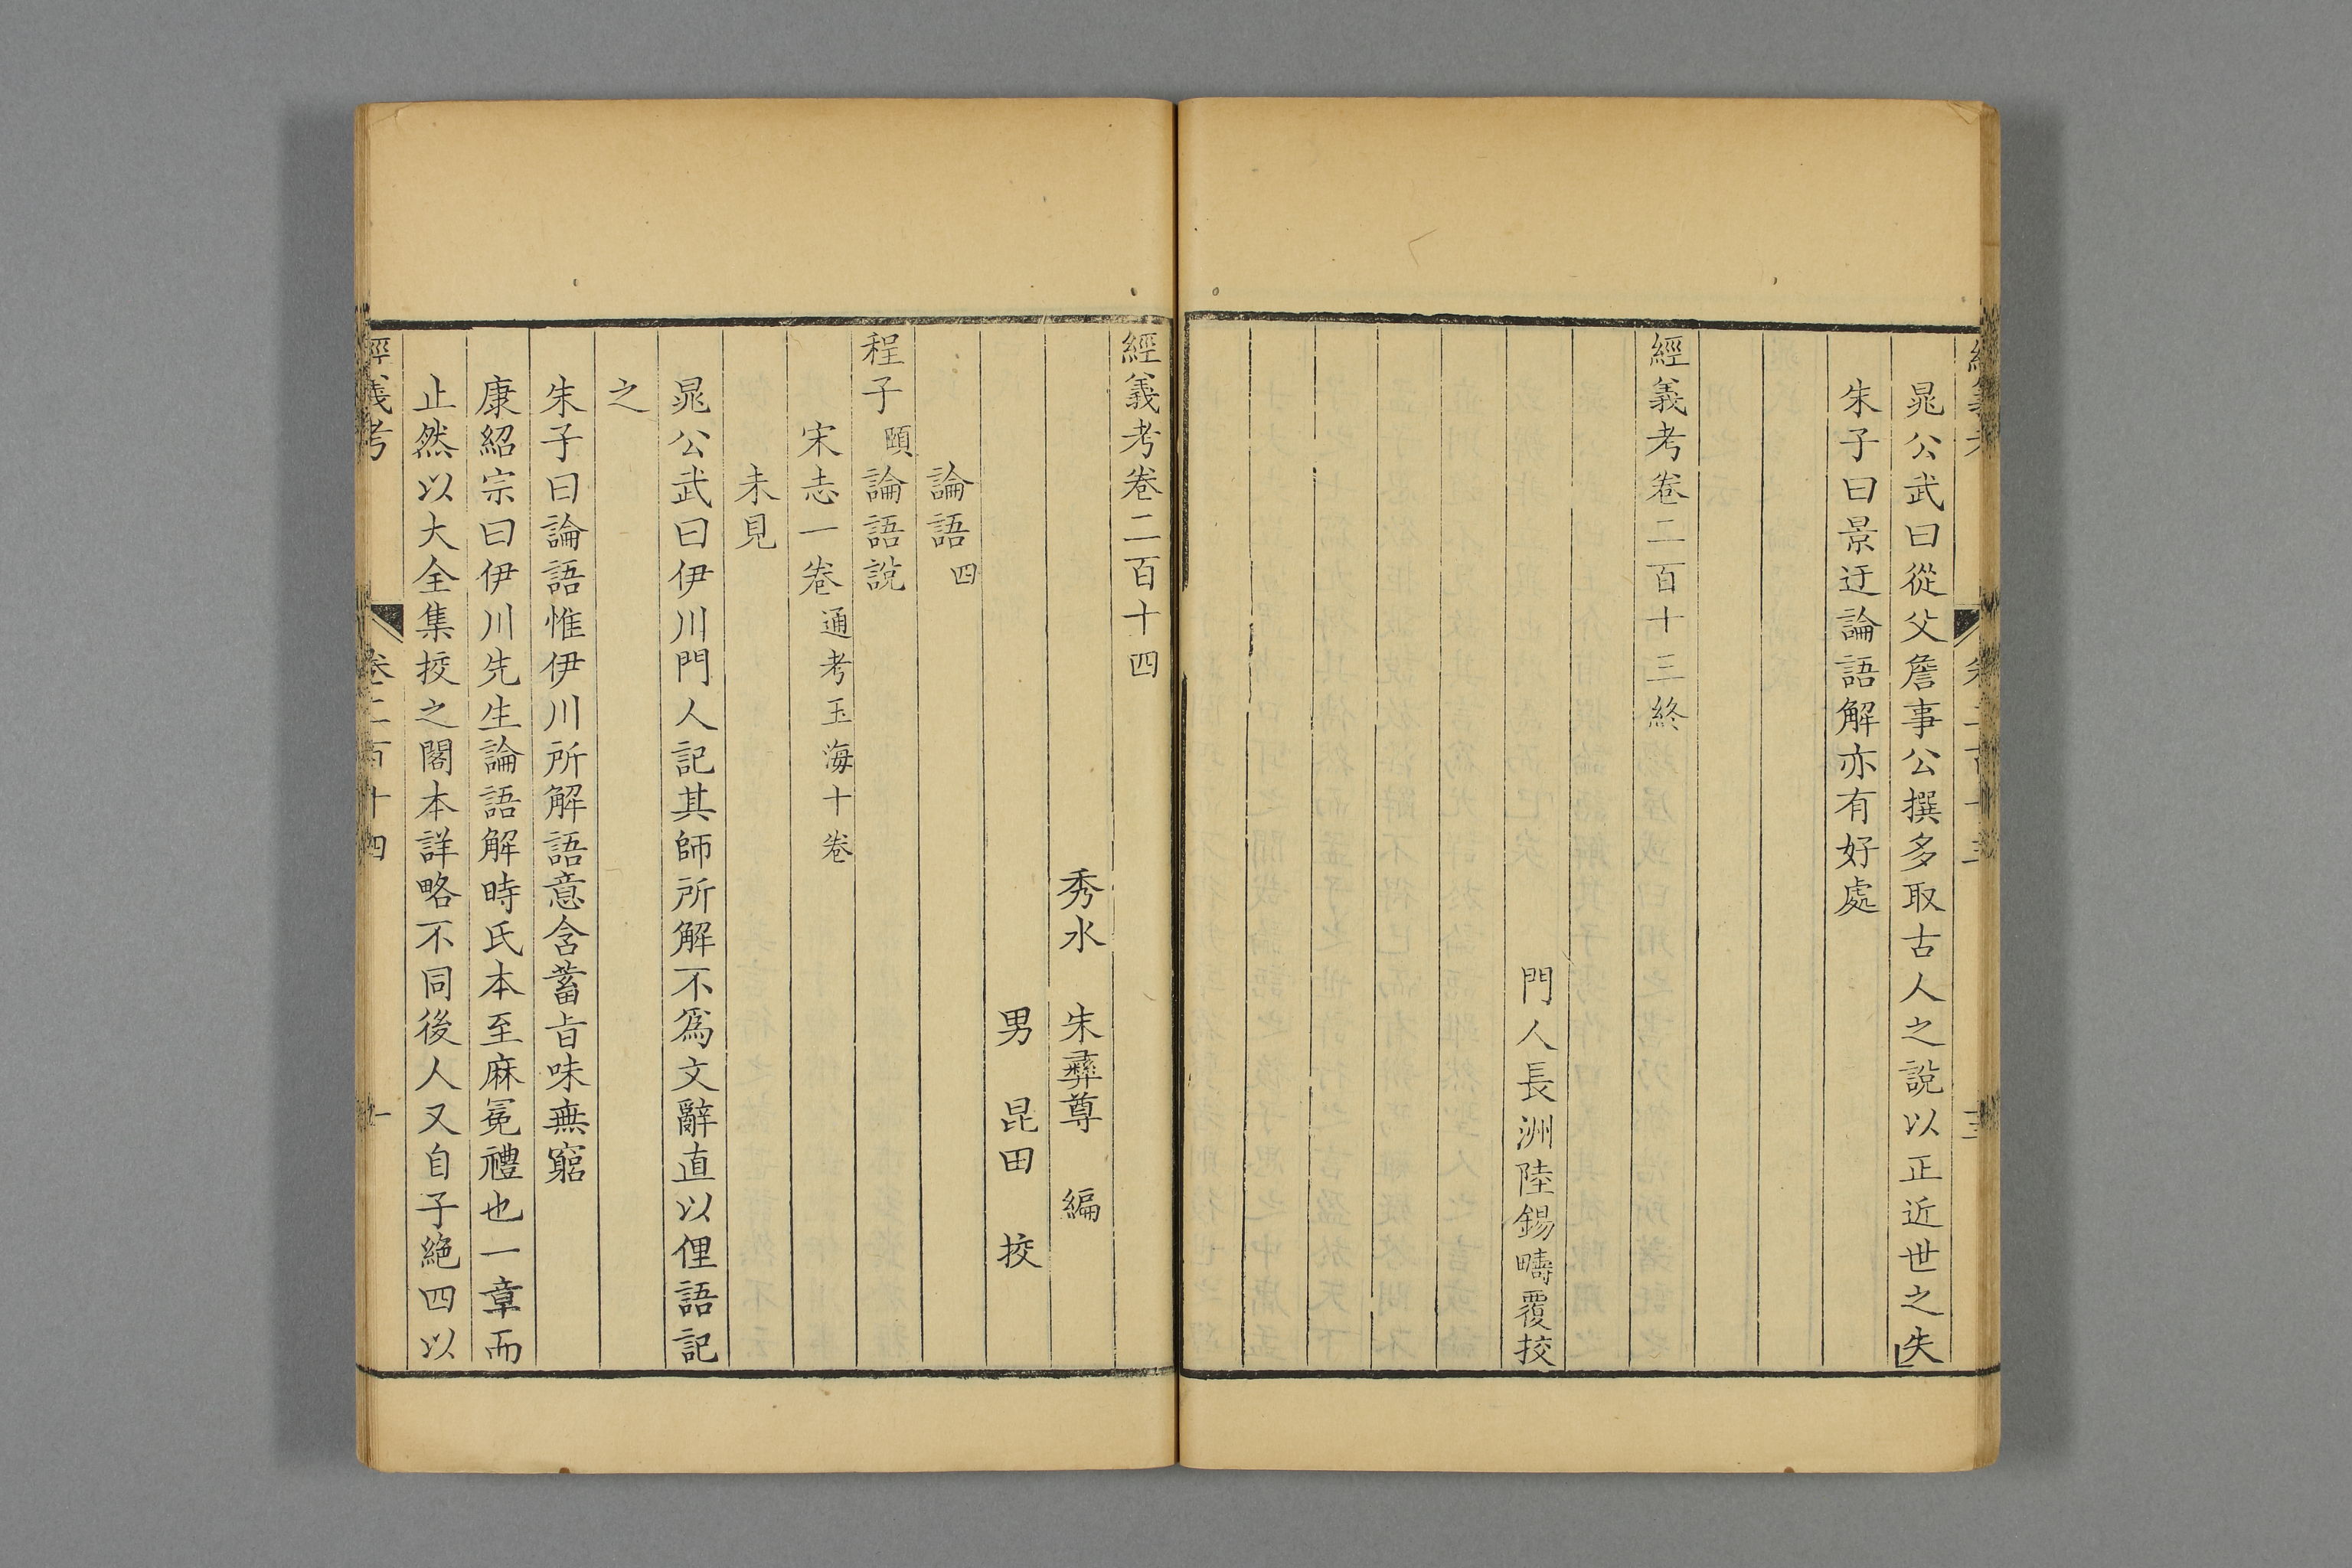 晁公武曰從父詹事公撰多取古人之說以正近世之失
朱子曰景迂論語解亦有好處
經義考卷二百十三終
門人長洲陸錫疇覆挍
經義考卷二百十四
秀水 朱彝尊 編
男 昆田 挍
論語四
程子頤論語說
宋志一卷通考玉海十卷
未見
晁公武曰伊川門人記其師所解不爲文辭直以俚語記
之
朱子曰論語惟伊川所解語意含蓄旨味無窮
康紹宗曰伊川先生論語解時氏本至麻冕禮也一章而
止然以大全集挍之閣本詳略不同後人又自子絕四以
經義考 卷二百十四 一